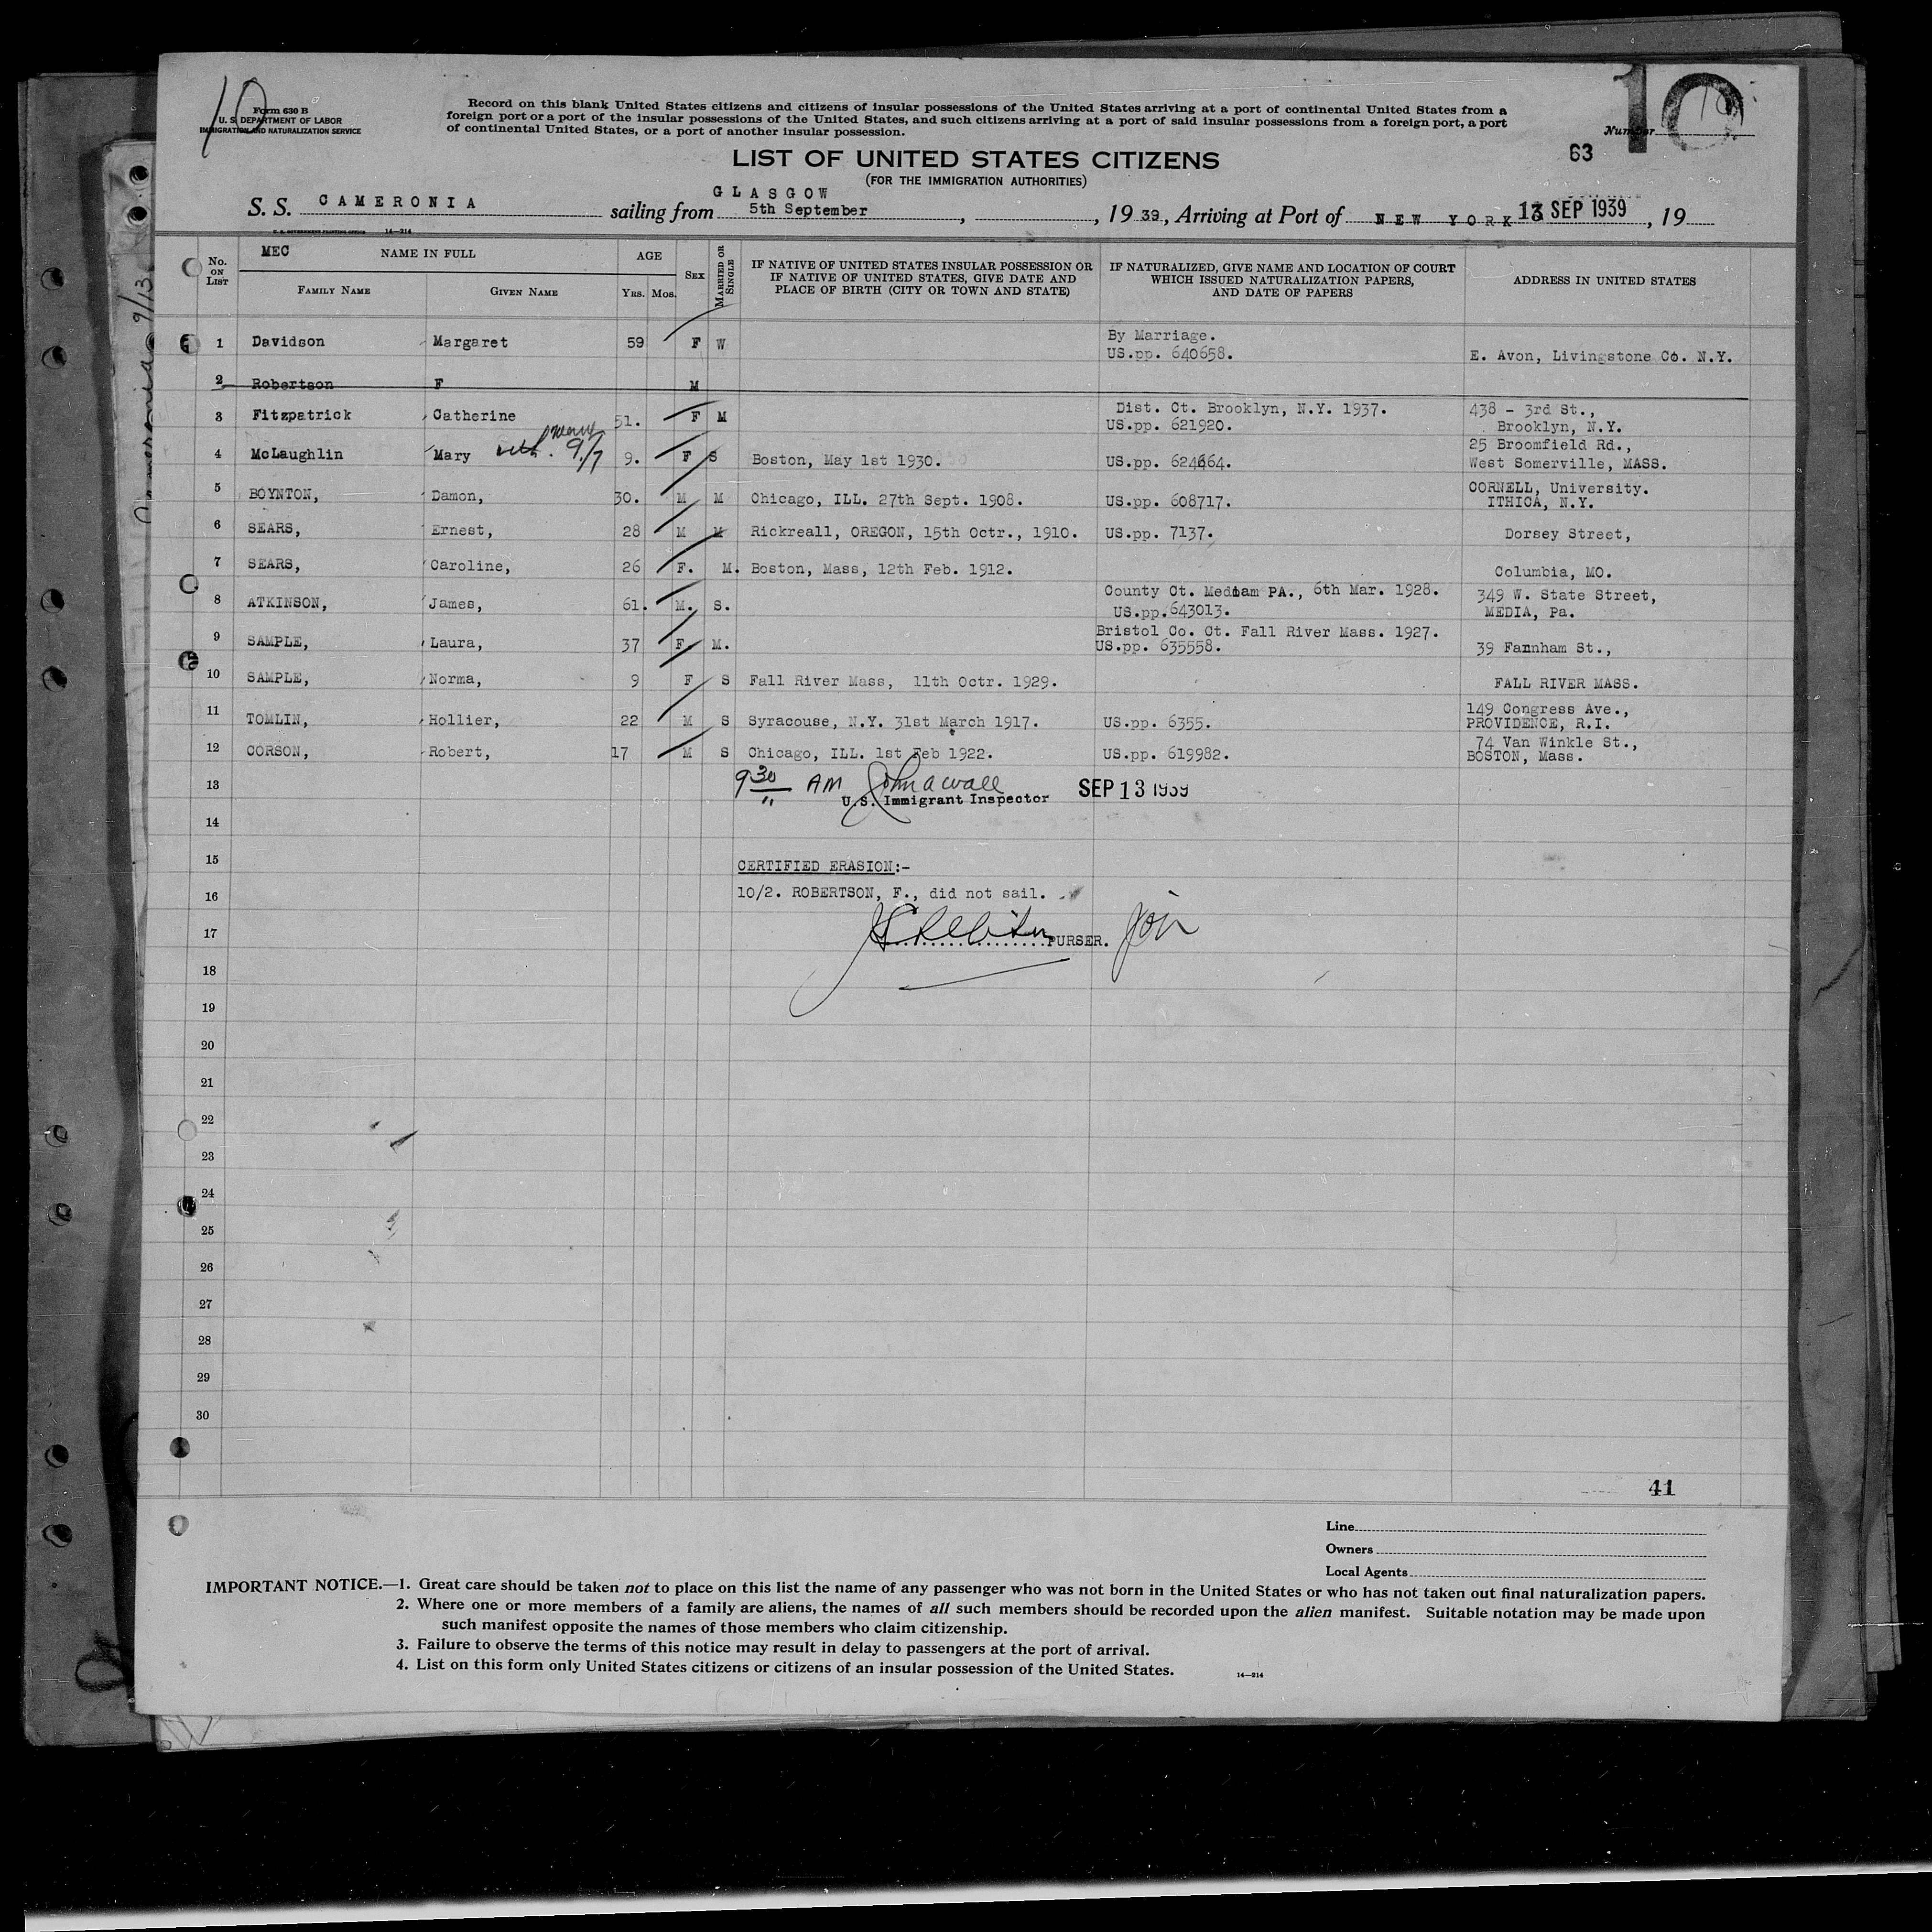 10
Form 630 B
U. S. DEPARTMENT OF LABOR
IMMIGRATION AND NATURALIZATION SERVICE
Record on this blank United States citizens and citizens of insular possessions of the United States arriving at a port of continental United States from a
foreign port or a port of the insular possessions of the United States, and such citizens arriving at a port of said insular possessions from a foreign port, a port
of continental United States, or a port of another insular possession.
Number 10
63
LIST OF UNITED STATES CITIZENS
(FOR THE IMMIGRATION AUTHORITIES)
S. S. CAMERONIA sailing from GLASGOW 5th September, , 19 39, Arriving at Port of NEW YORK 13 SEP 1939, 19
U. S. GOVERNMENT PRINTING OFFICE 14—214
No. ON LIST MEC NAME IN FULL AGE SEX MARRIED OR SINGLE IF NATIVE OF UNITED STATES INSULAR POSSESSION OR IF NATIVE OF UNITED STATES, GIVE DATE AND PLACE OF BIRTH (CITY OR TOWN AND STATE) IF NATURALIZED, GIVE NAME AND LOCATION OF COURT WHICH ISSUED NATURALIZATION PAPERS, AND DATE OF PAPERS ADDRESS IN UNITED STATES
FAMILY NAME GIVEN NAME YRS. MOS.
1 Davidson Margaret 59 F W By Marriage. US.pp. 640658. E. Avon, Livingstone Co. N.Y.
2 Robertson F M
3 Fitzpatrick Catherine 51. F M Dist. Ct. Brooklyn, N.Y. 1937. US.pp. 621920. 438 - 3rd St., Brooklyn, N.Y.
4 McLaughlin Mary 9/7 9. F S Boston, May 1st 1930. US.pp. 624664. 25 Broomfield Rd., West Somerville, MASS.
5 BOYNTON, Damon, 30. M M Chicago, ILL. 27th Sept. 1908. US.pp. 608717. CORNELL, University. ITHICA, N.Y.
6 SEARS, Ernest, 28 M M Rickreall, OREGON, 15th Octr., 1910. US.pp. 7137. Dorsey Street,
7 SEARS, Caroline, 26 F. M. Boston, Mass, 12th Feb. 1912. Columbia, MO.
8 ATKINSON, James, 61. M. S. County Ct. Mediam PA., 6th Mar. 1928. US.pp.643013. 349 W. State Street, MEDIA, Pa.
9 SAMPLE, Laura, 37 F M. Bristol Co. Ct. Fall River Mass. 1927. US.pp. 635558. 39 Farnham St.,
10 SAMPLE, Norma, 9 F S Fall River Mass, 11th Octr. 1929. FALL RIVER MASS.
11 TOMLIN, Hollier, 22 M S Syracouse, N.Y. 31st March 1917. US.pp. 6355. 149 Congress Ave., PROVIDENCE, R.I.
12 CORSON, Robert, 17 M S Chicago, ILL. 1st Feb 1922. US.pp. 619982. 74 Van Winkle St., BOSTON, Mass.
13 9 30 AM John a Wall U.S. Immigrant Inspector SEP 13 1939
14
15 CERTIFIED ERASION:-
16 10/2. ROBERTSON, F., did not sail.
17 PURSER.
18
19
20
21
22
23
24
25
26
27
28
29
30
41
Line
Owners
Local Agents
IMPORTANT NOTICE.—1. Great care should be taken not to place on this list the name of any passenger who was not born in the United States or who has not taken out final naturalization papers.
2. Where one or more members of a family are aliens, the names of all such members should be recorded upon the alien manifest. Suitable notation may be made upon
such manifest opposite the names of those members who claim citizenship.
3. Failure to observe the terms of this notice may result in delay to passengers at the port of arrival.
4. List on this form only United States citizens or citizens of an insular possession of the United States.
14—214
Cameronia 9/13